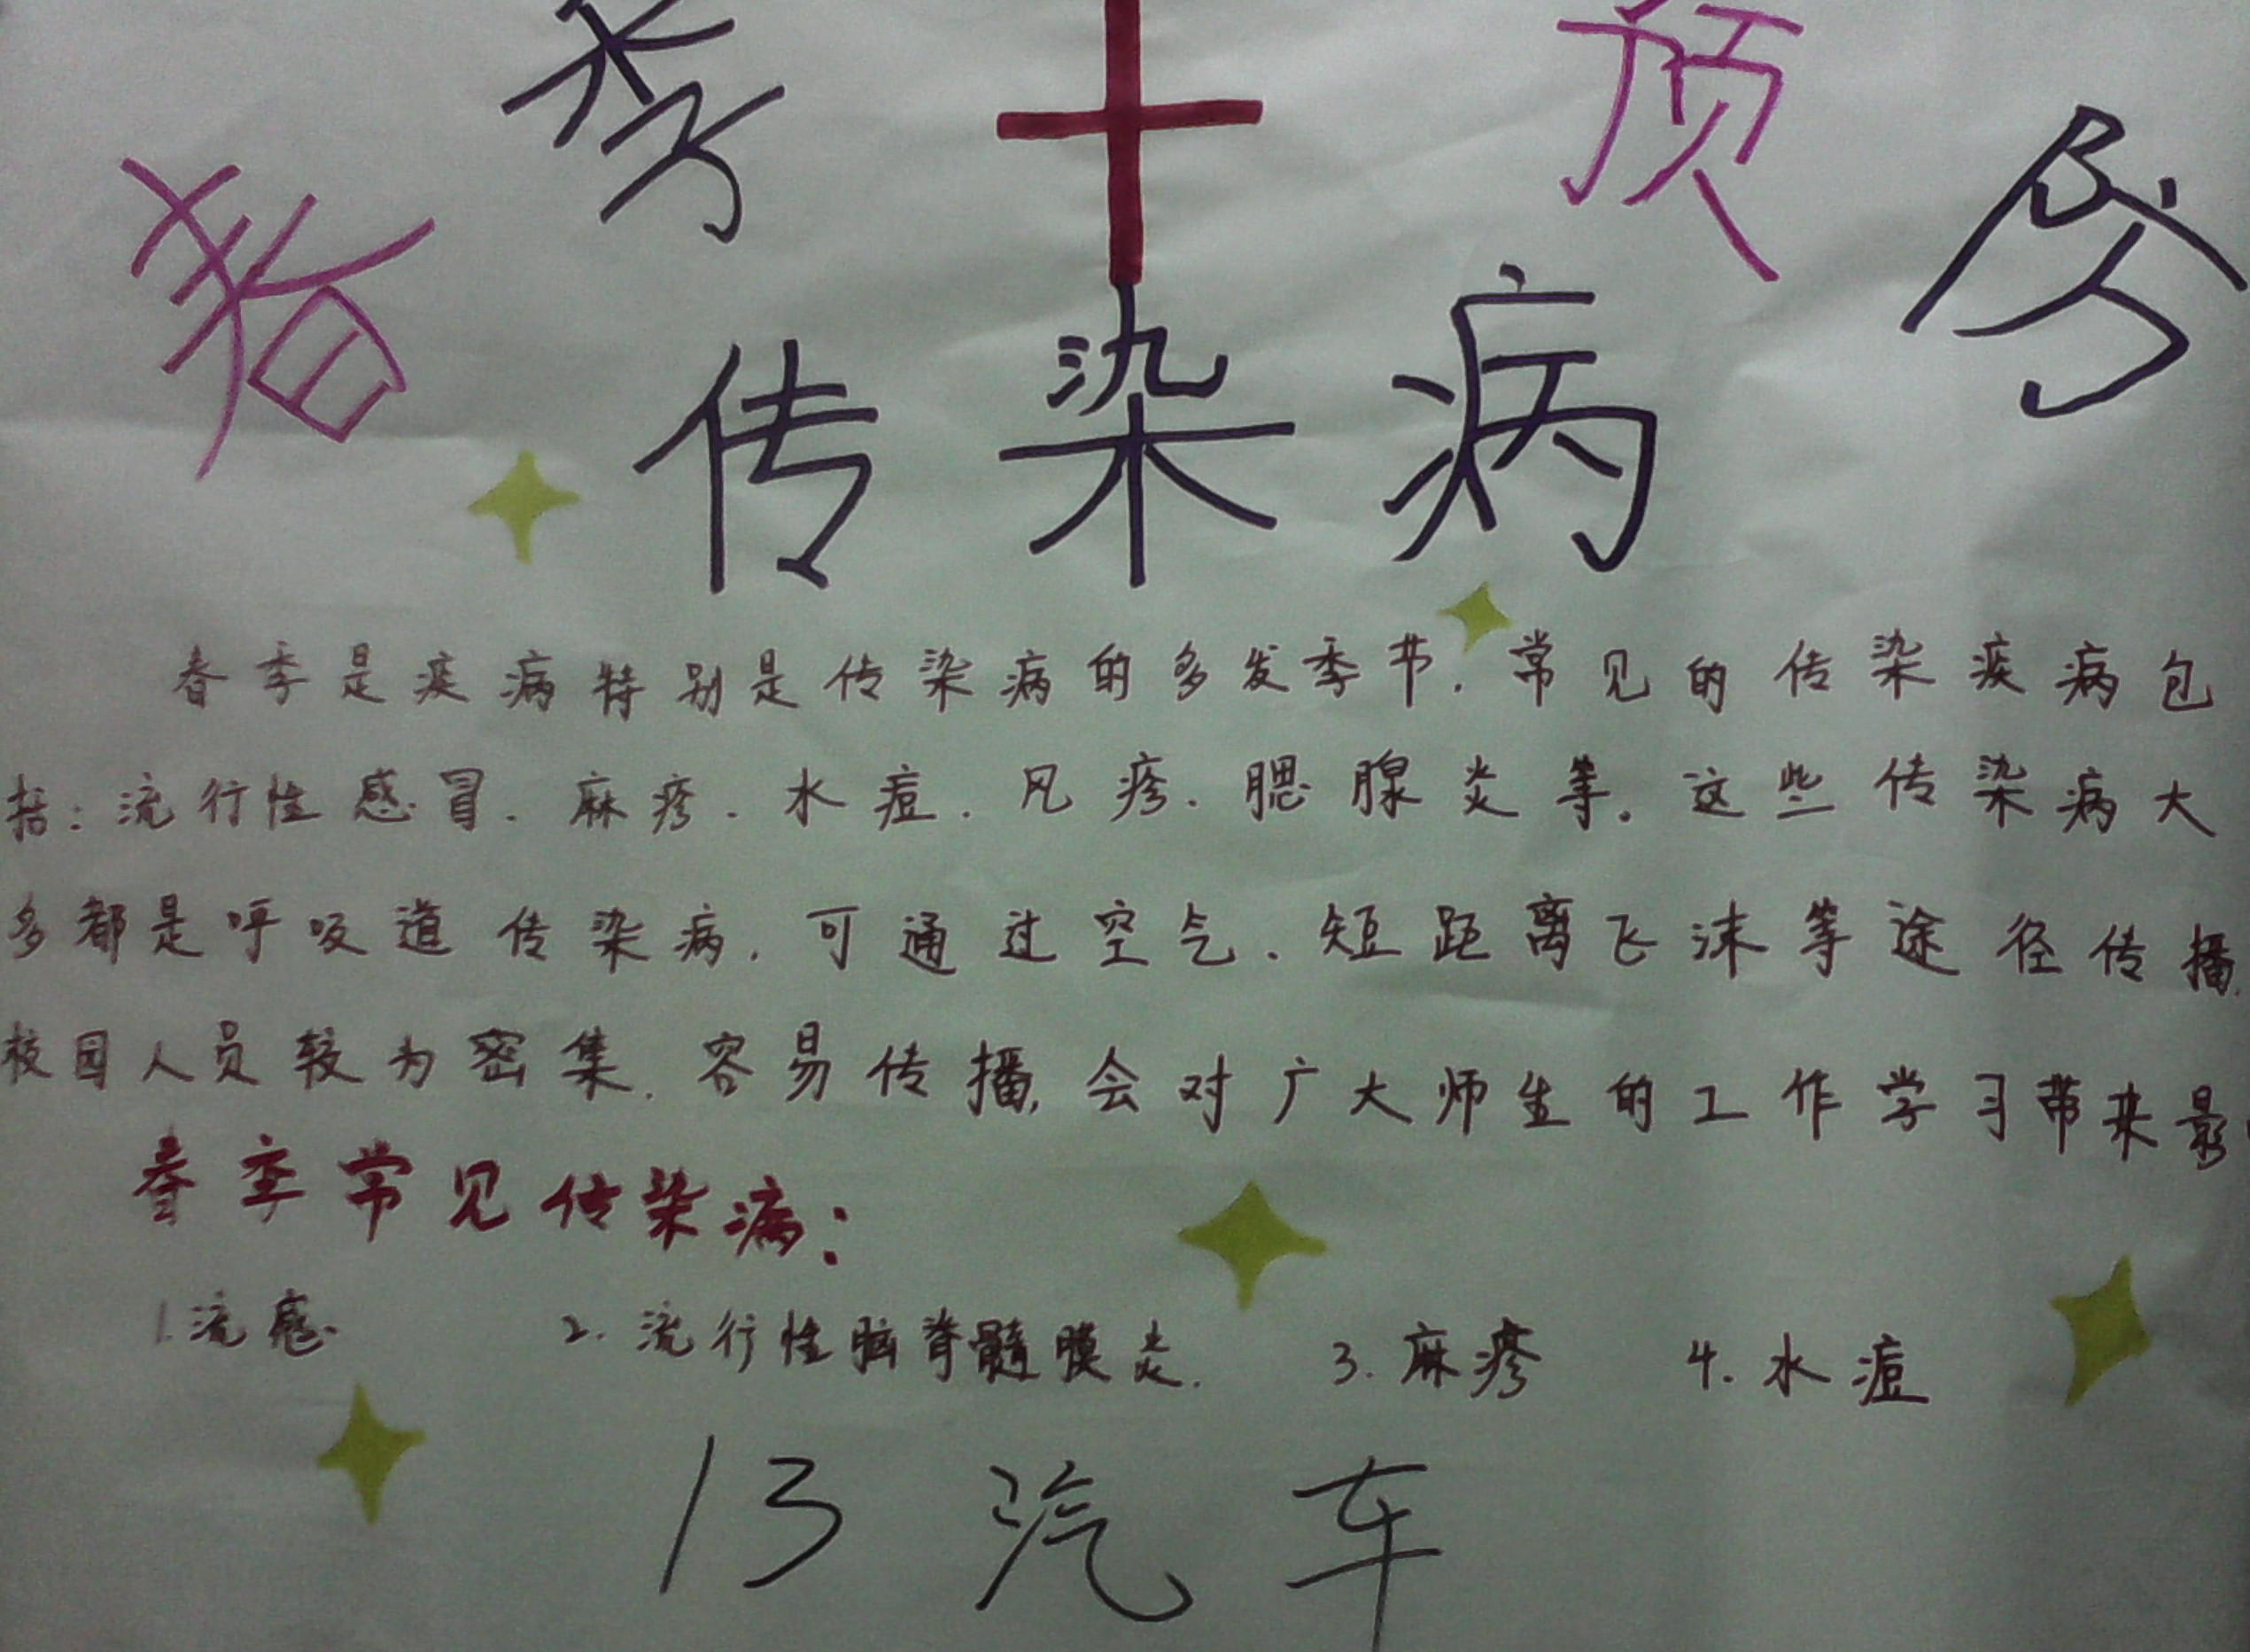 春季预防
传染病
春季是疾病特别是传染病的多发季节.常见的传染疾病包
括:流行性感冒.麻疹.水痘.风疹.腮腺炎等。这些传染病大
多都是呼吸道传染病.可通过空气.短距离飞沫等途径传播.
校园人员较为密集.容易传播,会对广大师生的工作学习带来影
春季常见传染病:
1.流感 2.流行性脑脊髓膜炎. 3.麻疹 4.水痘
13汽车